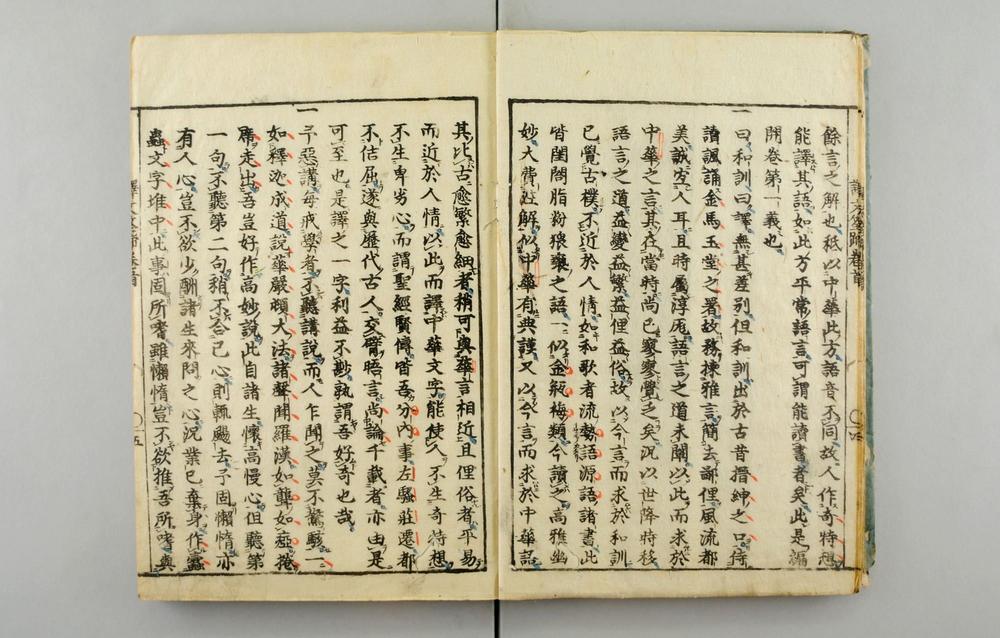 餘言之解也秪以中華此方語音不同故人作奇特想
能譯其語如此方平常語言可謂能讀書者矣此是編
開卷第一義也
一
曰和訓曰譯無甚差別但和訓出於古昔搢紳之口侍
讀諷誦金馬玉堂之署故務揀雅言簡去鄙俚風流都
美誠宜人耳且時屬淳厖語言之道未闢以此而求於
中華之言其在當時尚已寥寥覺之矣況以世降時移
語言之道益變益繁益俚益俗故以今言而求於和訓
已覺古樸不近於人情如和歌者流勢語源語諸書此
皆閨閤脂粉猥褻之語一似金瓶梅類今讀之高雅幽
妙大費註解似中華有典謨又以今言而求於中華語
其比古愈繁愈細者稍可與華言相近且俚俗者平易
而近於人情以此而譯中華文字能使人不生奇特想
不生卑劣心而謂聖經賢傳皆吾分内事左騷莊遷都
不佶屈遂與歷代古人交臂晤言尚論千載者亦由是
可至也是譯之一字利益不尠孰謂吾好奇也哉
一
予惡講每戒學者不聽講說而人乍聞之莫不驚駭一
如釋迦成道說華嚴頓大法諸聲聞羅漢如聾如瘂掩
席走出吾豈好作高妙說此自諸生懷高慢心但聽第
一句不聽第二句稍不合己心則輒颺去予固懶惰亦
有人心豈不欲少酬諸生來問之心況業已棄身作蠹
蟲文字堆中此事固所嗜雖懶惰豈不欲推吾所嗜與